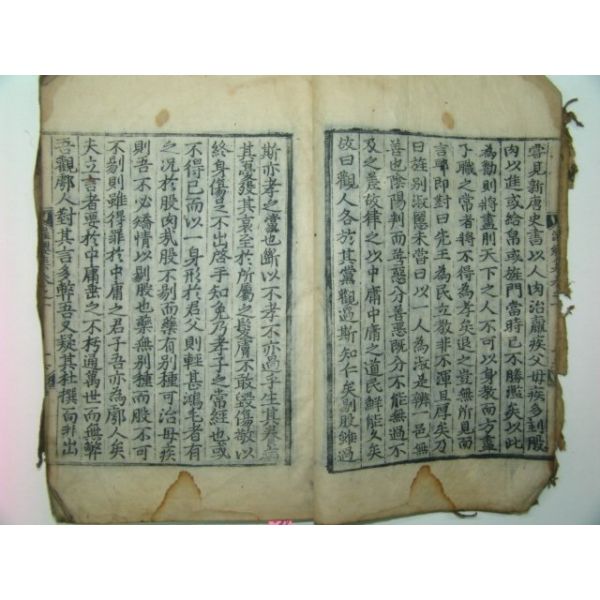 嘗見新唐史書以人肉治羸疾父母疾多刲股
肉以進或給帛或旌門當時已不勝煩矣以此
為勸則將盡刖天下之人不可以身教而方盡
子職之常者將不得為孝矣退之豈無所見而
言耶即對曰先王為民立教非不渾且厚矣乃
曰旌別淑慝未嘗曰以一人為淑是辨一邑無
善也陰陽判而善惡分善惡旣分不能無過不
及之差故律之以中庸中庸之道民鮮能久矣
故曰觀人各於其黨觀過斯知仁矣刲股雖過
斯亦孝之當也斷以不孝不亦過乎生其
其憂發其哀至於所屬之髮膚不敢毀傷敬以
終身傷足不出啓手知免乃孝子之常經也或
不得已而以一身形於君父則輕甚鴻毛者有
之况於股肉哉股不刲而藥有別種可治母疾
則吾不必矯情以刲股也藥無別種而股不可
不刲則雖得罪於中庸之君子吾亦為鄠人矣
夫立言者要於中庸垂之不朽通萬世而無弊
吾觀鄠人對其言多弊吾又疑其杜撰而非出